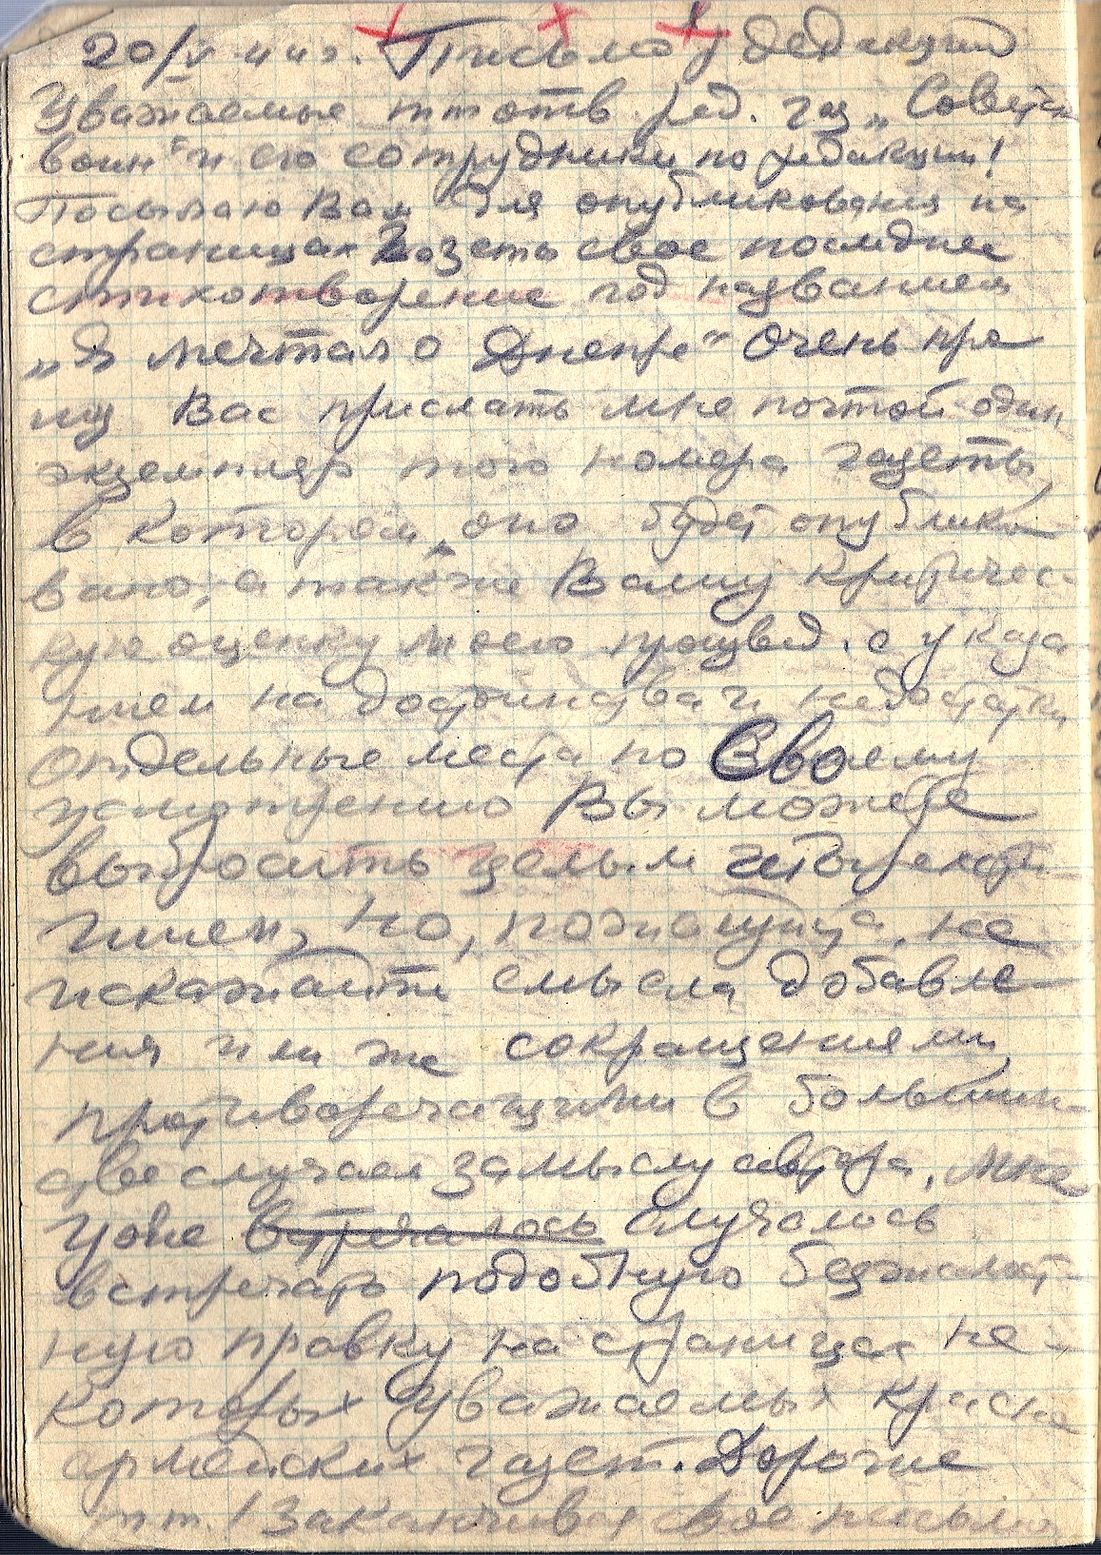 20/V 44 г. Письмо у редакции
Уважаемые тт отв. ред. газ „Советск
воин" и его сотрудники по редакции!
Посылаю Вам для опубликования на
страницах газеты свое последнее
стихотворение под названием
„Я мечтал о Днепре" Очень про
шу Вас прислать мне почтой один
экземпляр того номера газеты,
в котором оно будет опублико
вано, а также Вашу критичес-
кую оценку моего произвед. с указа
нием на достоинства и недостатки
Отдельные места по Своему
усмотрению Вы можете
выбросить целым
но, пожалуйста, не
искажайте смысла добавле
ния или же сокращениями,
противоречащими в большин-
стве случаев замыслу автора. Мне
уже встречалось случалось
встречать подобную безжалост-
ную правку на страницах не-
которых уважаемых красно
армейских газет. Дорогие
тт.! Заканчивая свое письмо